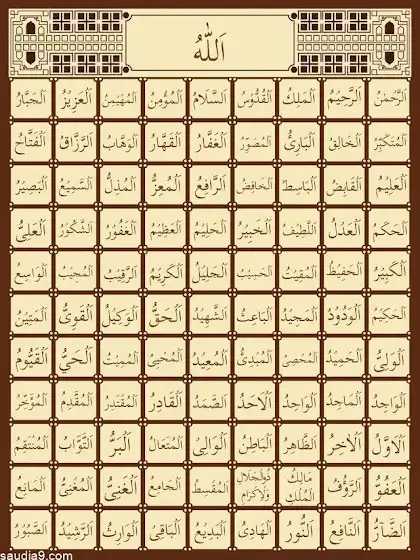 اَللّٰهُ
اَلرَّحْمٰنُ اَلرَّحِيْمُ اَلْمَلِكُ اَلْقُدُّوْسُ اَلسَّلَامُ اَلْمُؤْمِنُ اَلْمُهَيْمِنُ اَلْعَزِيْزُ اَلْجَبَّارُ
اَلْمُتَكَبِّرُ اَلْخَالِقُ اَلْبَارِئُ اَلْمُصَوِّرُ اَلْغَفَّارُ اَلْقَهَّارُ اَلْوَهَّابُ اَلرَّزَّاقُ اَلْفَتَّاحُ
اَلْعَلِيْمُ اَلْقَابِضُ اَلْبَاسِطُ اَلْخَافِضُ اَلرَّافِعُ اَلْمُعِزُّ اَلْمُذِلُّ اَلسَّمِيْعُ اَلْبَصِيْرُ
اَلْحَكَمُ اَلْعَدْلُ اَللَّطِيْفُ اَلْخَبِيْرُ اَلْحَلِيْمُ اَلْعَظِيْمُ اَلْغَفُوْرُ اَلشَّكُوْرُ اَلْعَلِىُّ
اَلْكَبِيْرُ اَلْحَفِيْظُ اَلْمُقِيْتُ اَلْحَسِيْبُ اَلْجَلِيْلُ اَلْكَرِيْمُ اَلرَّقِيْبُ اَلْمُجِيْبُ اَلْوَاسِعُ
اَلْحَكِيْمُ اَلْوَدُوْدُ اَلْمَجِيْدُ اَلْبَاعِثُ اَلشَّهِيْدُ اَلْحَقُّ اَلْوَكِيْلُ اَلْقَوِىُّ اَلْمَتِيْنُ
اَلْوَلِىُّ اَلْحَمِيْدُ اَلْمُحْصِىْ اَلْمُبْدِئُ اَلْمُعِيْدُ اَلْمُحْيِىْ اَلْمُمِيْتُ اَلْحَىُّ اَلْقَيُّوْمُ
اَلْوَاجِدُ اَلْمَاجِدُ اَلْوَاحِدُ اَلْاَحَدُ اَلصَّمَدُ اَلْقَادِرُ اَلْمُقْتَدِرُ اَلْمُقَدِّمُ اَلْمُؤَخِّرُ
اَلْاَوَّلُ اَلْاٰخِرُ اَلظَّاهِرُ اَلْبَاطِنُ اَلْوَالِىْ اَلْمُتَعَالُ اَلْبَرُّ اَلتَّوَّابُ اَلْمُنْتَقِمُ
اَلْعَفُوُّ اَلرَّؤُفُ مَالِكُ الْمُلْكِ ذُوالْجَلَالِ وَالْاِكْرَامِ اَلْمُقْسِطُ اَلْجَامِعُ اَلْغَنِىُّ اَلْمُغْنِىُّ اَلْمَانِعُ
اَلضَّآرُّ اَلنَّافِعُ اَلنُّوْرُ اَلْهَادِىْ اَلْبَدِيْعُ اَلْبَاقِىْ اَلْوَارِثُ اَلرَّشِيْدُ اَلصَّبُوْرُ
saudia9.com